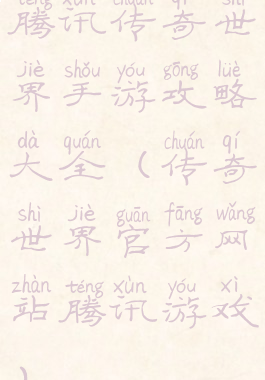 téng xùn chuán qí shì
腾讯传奇世
jiè shǒu yóu gōng lüè
界手游攻略
dà quán chuán qí
大全（传奇
shì jiè guān fāng wǎng
世界官方网
zhàn téng xùn yóu xì
站腾讯游戏
）